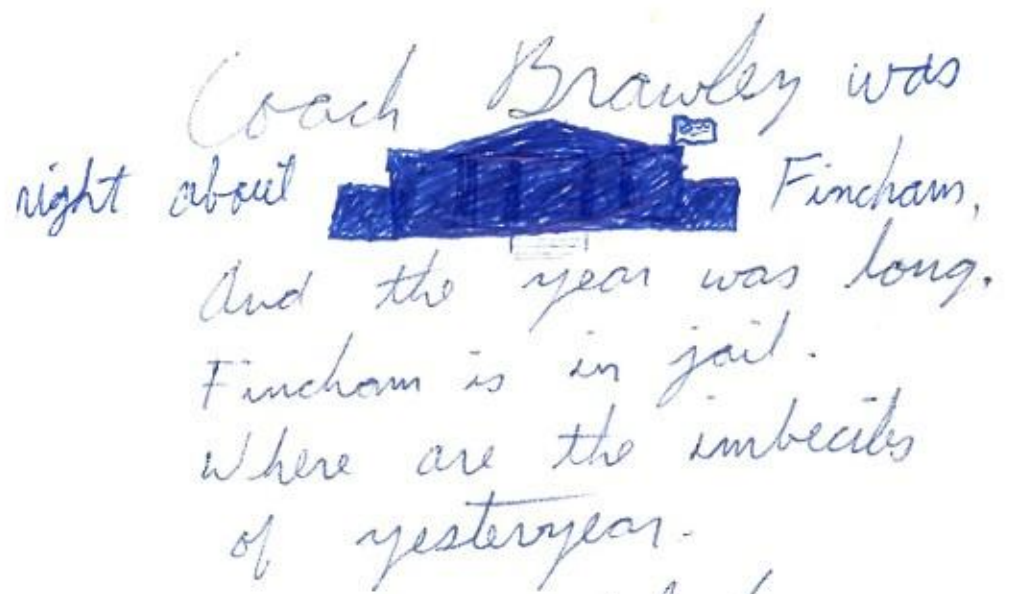 Coach Brawley was
right about Fincham,
And the year was long.
Fincham is in jail.
Where are the imbeciles
of yesteryear.